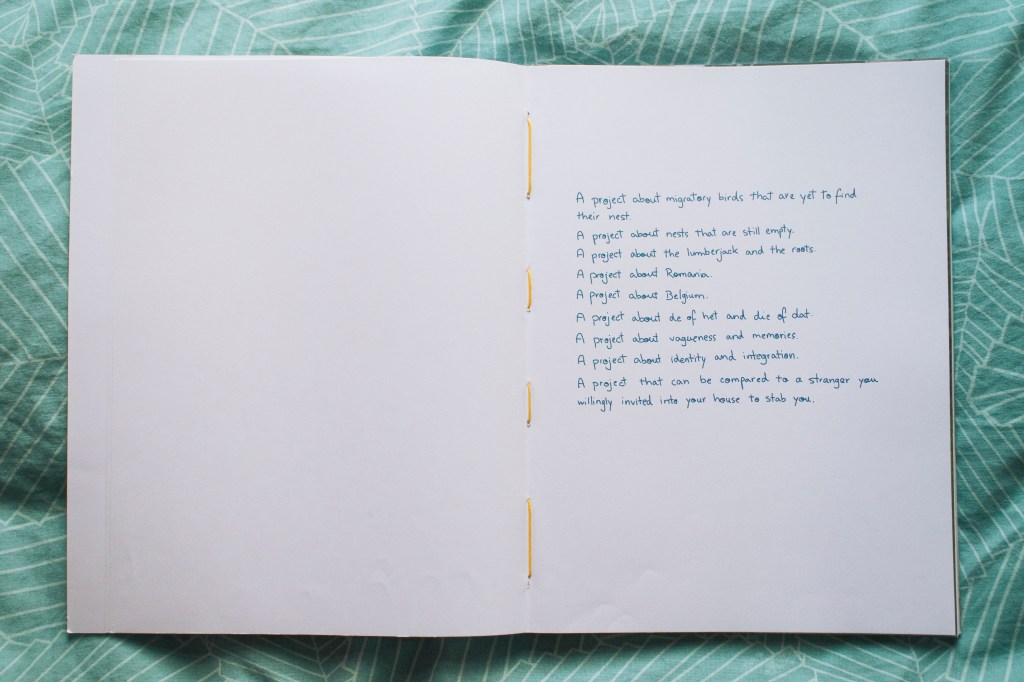 A project about migratory birds that are yet to find
their nest.
A project about nests that are still empty.
A project about the lumberjack and the roots.
A project about Romania.
A project about Belgium.
A project about de of het and die of dat.
A project about vagueness and memories.
A project about identity and integration.
A project that can be compared to a stranger you
willingly invited into your house to stab you.